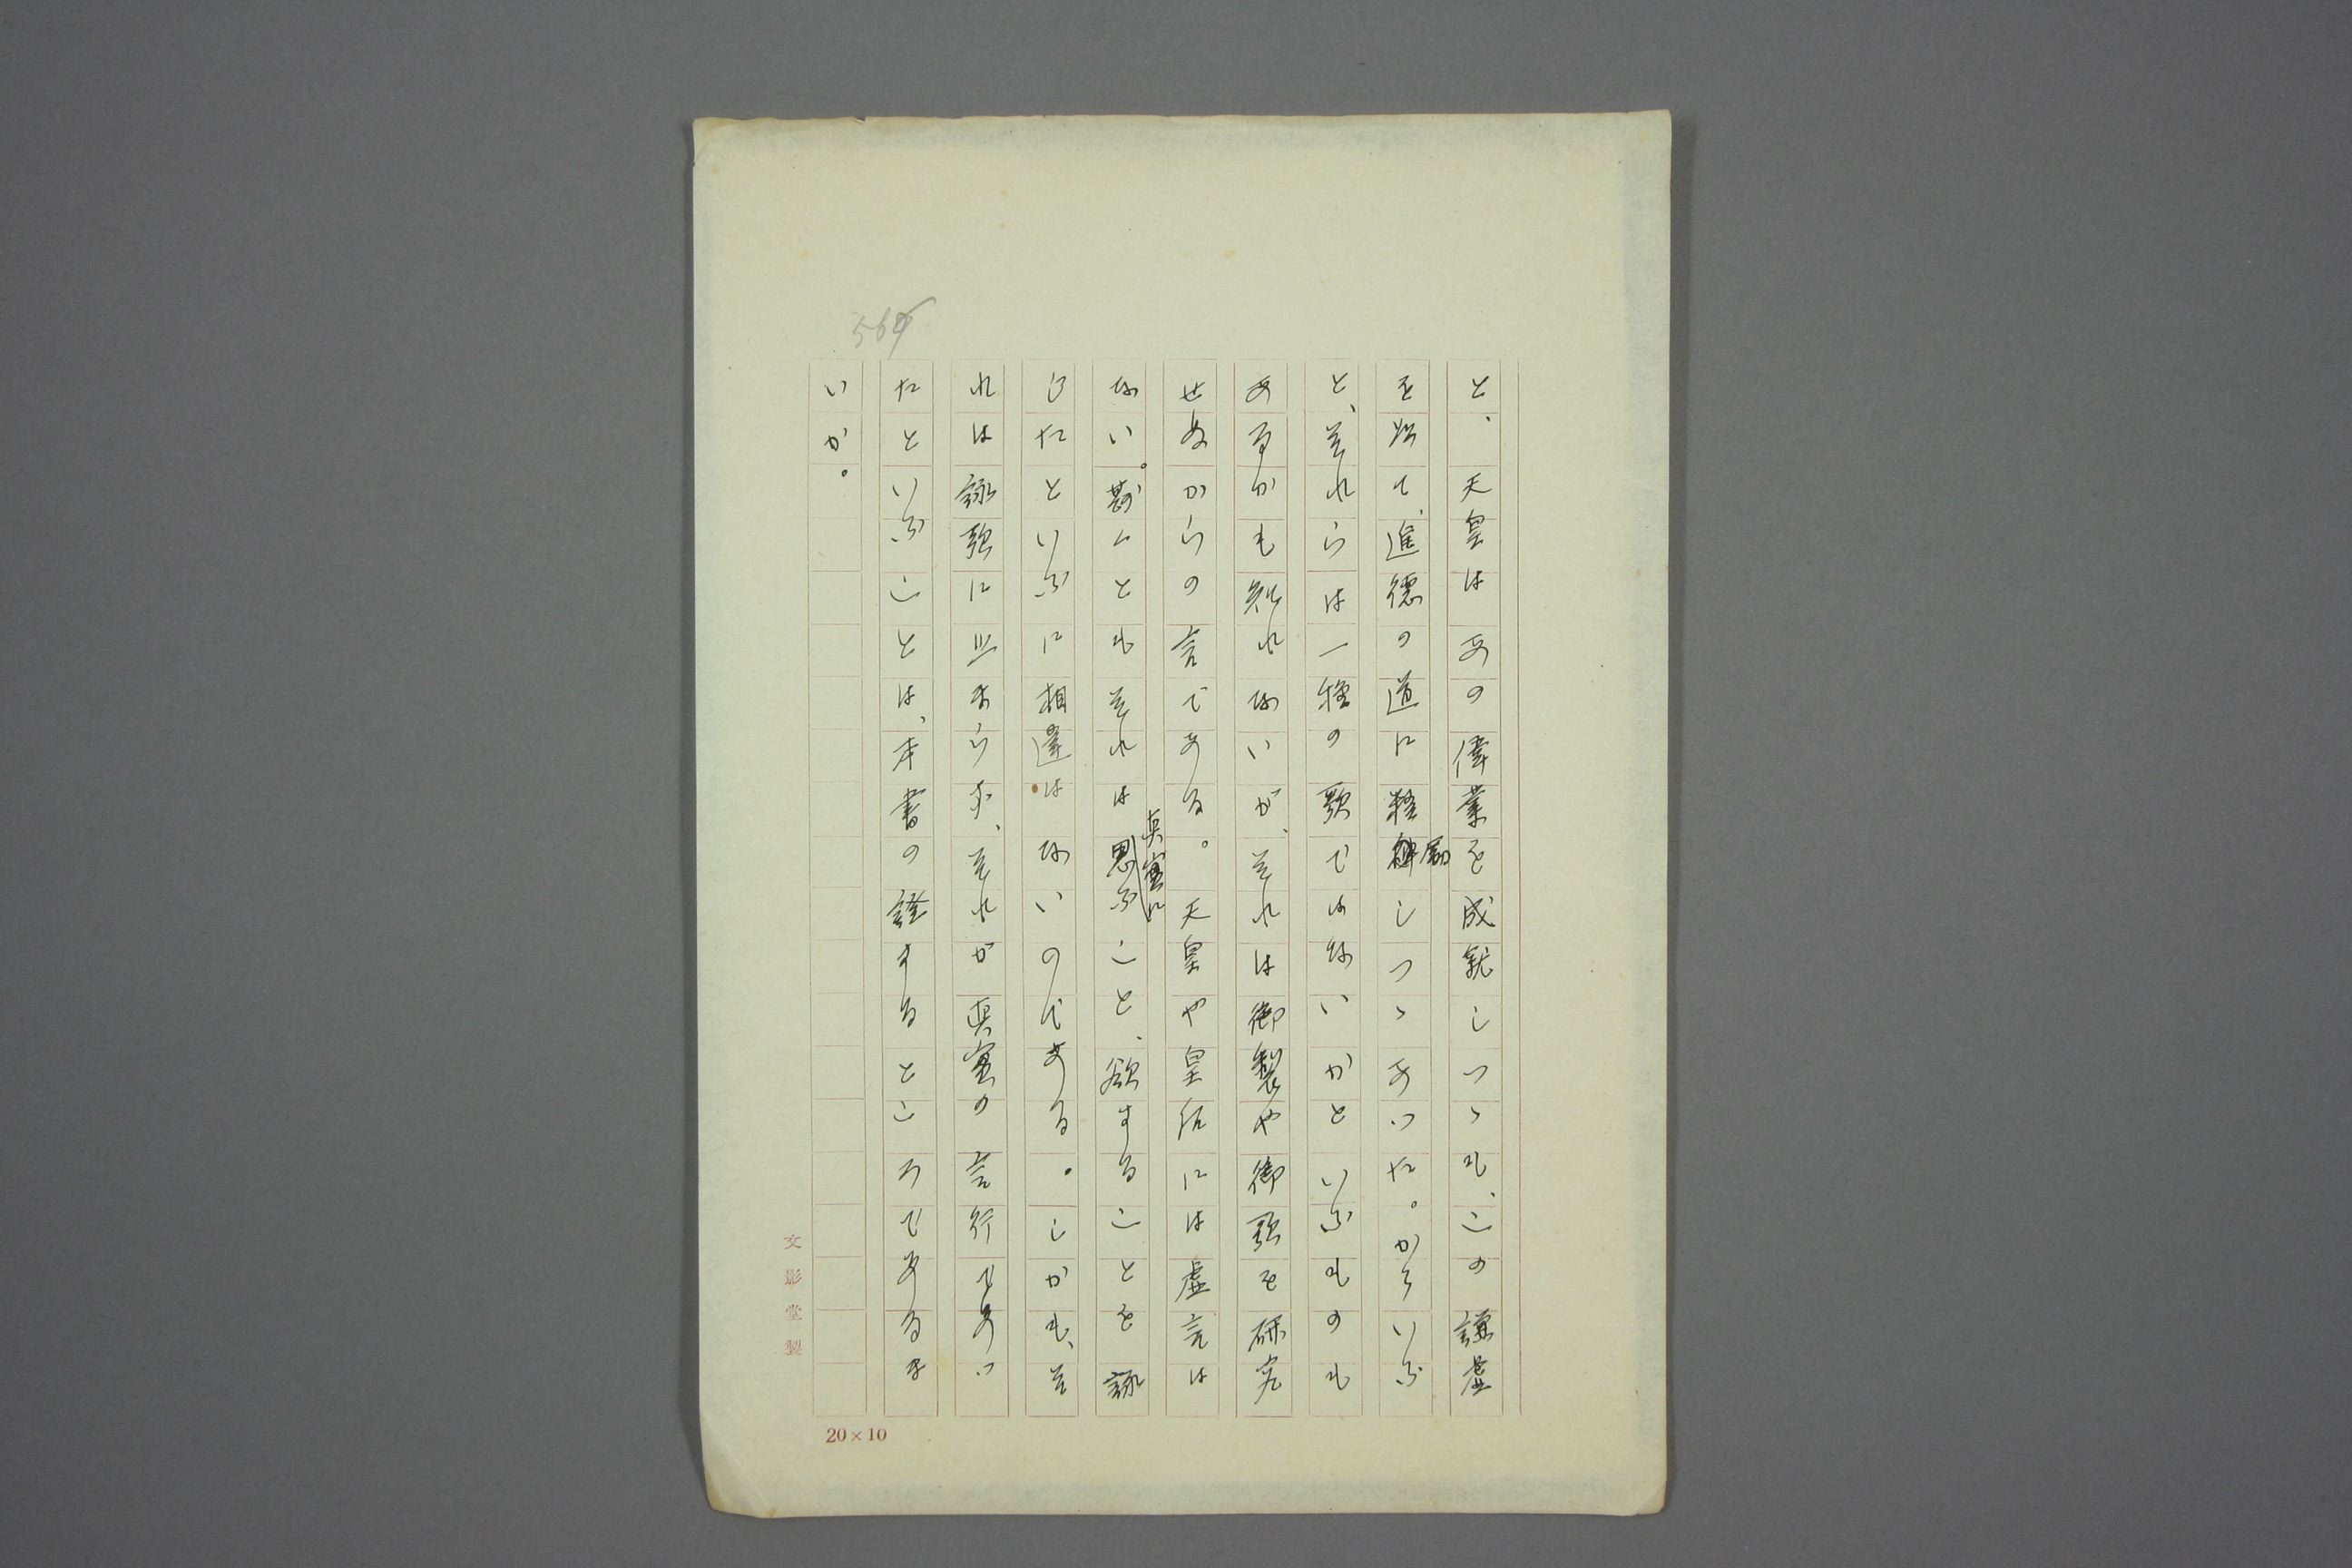 569
と、天皇はあの偉業を成就しつゝも、この謙虚
を以て、進徳の道に精励しつゝあつた。かういふ
と、それらは一種の歌ではないかといふものも
あるかも知れないが、それは御製や御歌を研究
せぬからの言である。天皇や皇后には虚言は
ない。尠くともそれは真實に思ふこと、欲することを詠
じたといふに相違はないのである。しかも、そ
れは詠歌に止まらず、それが真實の言行であつ
たといふことは、本書の證するところであるま
いか。
文影堂製
20×10